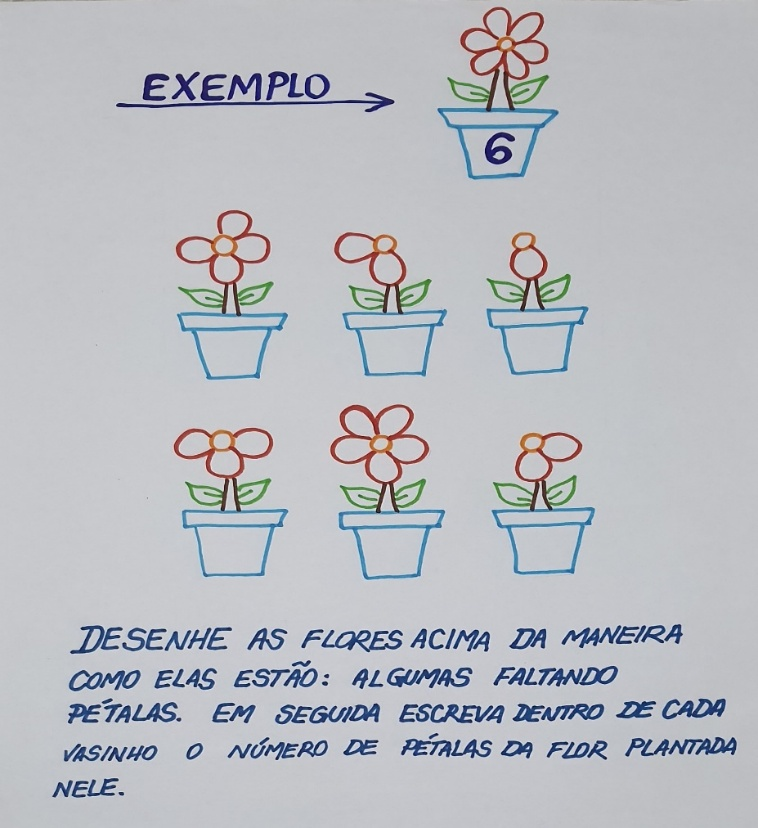 EXEMPLO
6
DESENHE AS FLORES ACIMA DA MANEIRA
COMO ELAS ESTÃO: ALGUMAS FALTANDO
PÉTALAS. EM SEGUIDA ESCREVA DENTRO DE CADA
VASINHO O NÚMERO DE PÉTALAS DA FLOR PLANTADA
NELE.